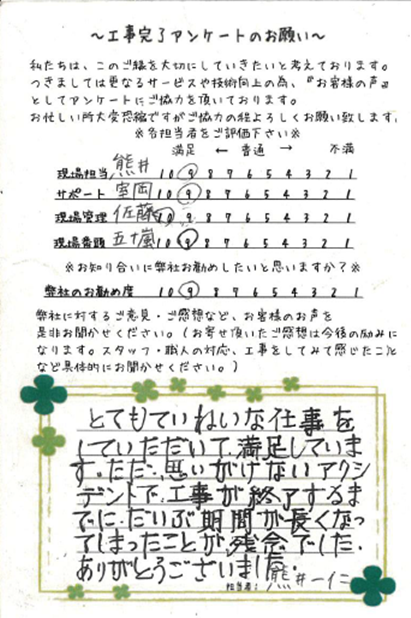 ～工事完了アンケートのお願い～
私たちは、このご縁を大切にしていきたいと考えております。
つきましては更なるサービスや技術向上の為、『お客様の声』
としてアンケートにご協力を頂いております。
お忙しい所大変恐縮ですがご協力の程よろしくお願い致します。
※各担当者をご評価下さい※
満足 ← 普通 → 不満
現場担当 熊井 10 9 8 7 6 5 4 3 2 1
サポート 室岡 10 9 8 7 6 5 4 3 2 1
現場管理 佐藤 10 9 8 7 6 5 4 3 2 1
現場番頭 五十嵐 10 9 8 7 6 5 4 3 2 1
※お知り合いに弊社お勧めしたいと思いますか？※
弊社のお勧め度 10 9 8 7 6 5 4 3 2 1
弊社に対するご意見・ご感想など、お客様のお声を
是非お聞かせください。（お寄せ頂いたご感想は今後の励みに
なります。スタッフ・職人の対応、工事をしてみて感じたこと
など具体的にお聞かせください。）
とてもていねいな仕事を
していただいて、満足していま
す。ただ、思いがけないアクシ
デントで、工事が終了するま
でに、だいぶ期間が長くなっ
てしまったことが、残念でした。
ありがとうございました。
担当者： 熊井一仁